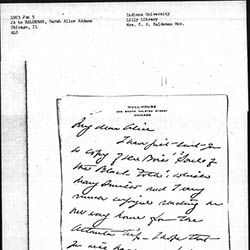 1903 Jun 5
JA to HALDEMAN, Sarah Alice Addams
Chicago, IL
ALS
Indiana University
Lilly Library
Mrs. H. A. Haldeman Mss.
HULL-HOUSE
CHICAGO
My dear Alice
I have just sent you
a copy of Du Bois' "Souls of
the Black Folk" which
Mary and I very
much enjoyed reading on
our way home from the
Atlanta trip. I hope that